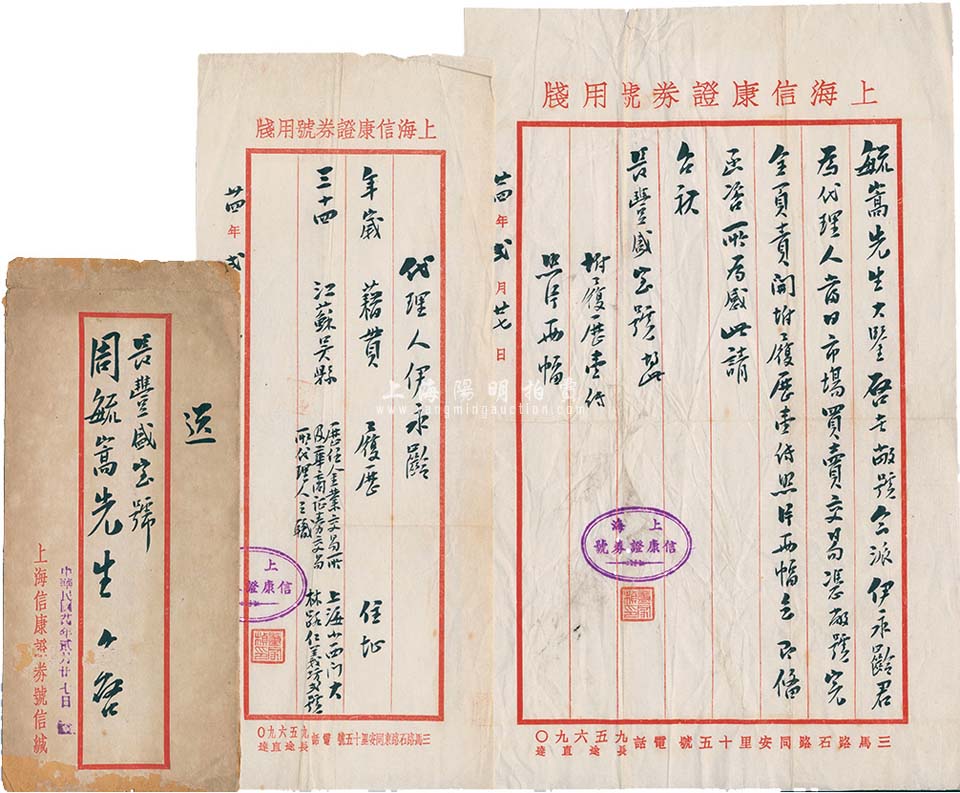 上海信康證券號用牋
毓嵩先生大鑒啓者敝號今派伊永齡君
爲代理人當日市塲買賣交易憑敝號完
全負責開附履歷壹份照片兩幅至
函洽所爲感此請
台祺
長豐盛宝號
附履歷壹份
照片兩幅
廿四年弍月廿七日
上海
信康證券號
三馬路石路同安里十五號 電話 九五六九〇
長途直達
上海信康證券號用牋
代理人伊永齡
年歲 藉貫 履歷 住址
三十四 江蘇吳縣
歷任金業交易所
及華商证券交易
所代理人之職
上海小西门大
林路仁義坊
廿四年弍
上
信康證
三馬路石路東同安里十五號 電話 九五六九〇
長途直達
送
長豐盛宝號
周毓嵩先生 台啓
上海信康證券號信緘
中華民國廿四年貳月廿七日
上海陽明拍賣
www.yangmingauction.com